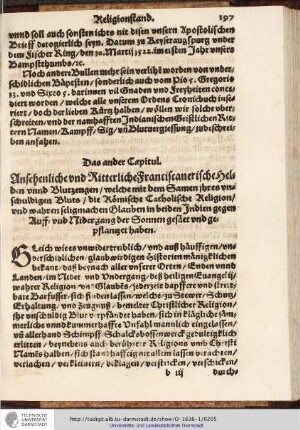 Religionstand. 197
vnnd soll auch sonsten ichts nit disen vnsern Apostolischen
Brieff derogierlich seyn. Datum zu Keyseraugspurg vnder
dem Fischer Ring, den 20. Martij 1522. im ersten Jahr vnsers
Bampstthumbs, ꝛc.
Noch andere Bullen mehr sein verlihẽ worden von vnder-
schidlichen Bäpesten, sonderlich auch vom Pio 5. Gregorio
13. vnd Sixto 5. darinnen vil Gnaden vnd Freyheiten conce-
diert worden, welche alle vnserem Ordens Cronichuch inse-
riert, doch der lieben Kürtz halben, wöllen wir solche vber-
schreiten, vnd der namhafften Indianischen Geistlichen Rit-
tern Namen, Kampff, Sig, vñ Blutvergiessung, zubeschrei-
ben anfahen.
Das ander Capitul.
Ansehenliche vnd Ritterliche Franciscanerische Hel-
den vnnd Blutzeugen, welche mit dem Samen jhres vn-
schuldigen Bluts, die Römische Catholische Religion,
vnd wahren seligmachen Glauben in beiden Indien gegen
Auff- vnd Nidergang der Sonnen gesäet vnd ge-
pflantzet haben.
Gleich wie es vnwidertrublich, vnd auß häuffigen, vn-
derschidlichen, glaubwirdigen Historien mänigklichen
bekant, daß beynach aller vnserer Orten, Enden vnnd
Landen, im Nider- vnd Vndergang, deß heiligen Euangelij,
wahrer Religion vnd Glaubẽs, jederzeit dapffere vnd streit-
bare Barfusser, sich finden lassen, welche zu Stewer, Schutz,
Erhaltung, vnd Zeugnuß, bemelter Christlicher Religion,
jhr vnschuldig Blut verpfändet haben, sich in klägliche, jäm-
merliche vnnd kummerhaffte Vnfahl mannlich eingelassen,
vñ allerhand Schimpff, Schalckshossenwerck gedultigklich
erlitten, beynebens auch berührter Religions vnnd Christi
Namẽs halben, sich standhafftigcite allem lassen verachten,
verlachen, verkleinern, verklagen, verstricken, verschicken,
b iij durch-
http://tudigit.ulb.tu-darmstadt.de/show/O-1636-1/0205
Universitäts- und Landesbibliothek Darmstadt
TECHNISCHE
UNIVERSITÄT
DARMSTADT